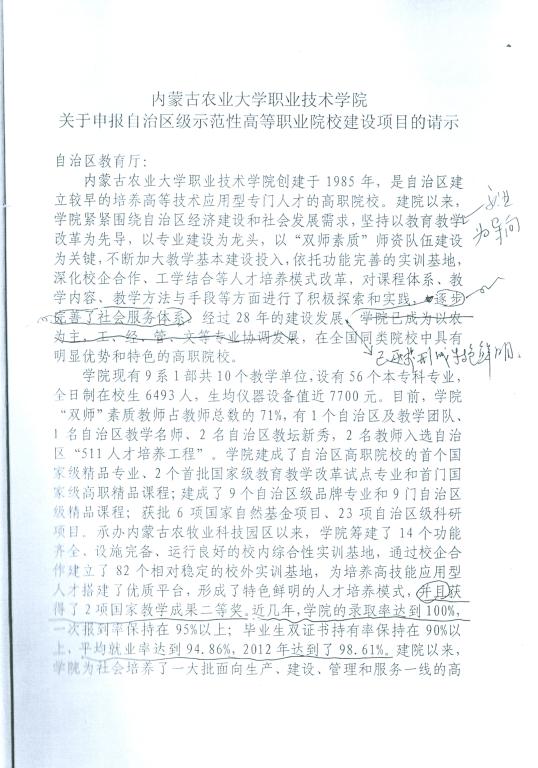 内蒙古农业大学职业技术学院
关于申报自治区级示范性高等职业院校建设项目的请示
自治区教育厅：
内蒙古农业大学职业技术学院创建于 1985 年，是自治区建
立较早的培养高等技术应用型专门人才的高职院校。建院以来，
学院紧紧围绕自治区经济建设和社会发展需求，坚持以教育教学
为导向
改革为先导，以专业建设为龙头，以“双师素质”师资队伍建设
为关键，不断加大教学基本建设投入，依托功能完善的实训基地，
深化校企合作、工学结合等人才培养模式改革，对课程体系、教
学内容、教学方法与手段等方面进行了积极探索和实践，逐步
完善了社会服务体系。经过 28 年的建设发展，学院已成为以农
为主，工、经、管、文等专业协调发展，在全国同类院校中具有
明显优势和特色的高职院校。
学院现有 9 系 1 部共 10 个教学单位，设有 56 个本专科专业，
全日制在校生 6493 人，生均仪器设备值近 7700 元。目前，学院
“双师”素质教师占教师总数的 71%，有 1 个自治区及教学团队、
1 名自治区教学名师、2 名自治区教坛新秀，2 名教师入选自治
区“511 人才培养工程”。学院建成了自治区高职院校的首个国
家级精品专业、2 个首批国家级教育教学改革试点专业和首门国
家级高职精品课程；建成了 9 个自治区级品牌专业和 9 门自治区
级精品课程；获批 6 项国家自然基金项目、23 项自治区级科研
项目。承办内蒙古农牧业科技园区以来，学院筹建了 14 个功能
齐全、设施完备、运行良好的校内综合性实训基地，通过校企合
作建立了 82 个相对稳定的校外实训基地，为培养高技能应用型
人才搭建了优质平台，形成了特色鲜明的人才培养模式，并且获
得了 2 项国家教学成果二等奖。近几年，学院的录取率达到 100%，
一次报到率保持在 95%以上；毕业生双证书持有率保持在 90%以
上，平均就业率达到 94.86%，2012 年达到了 98.61%。建院以来，
学院为社会培养了一大批面向生产、建设、管理和服务一线的高